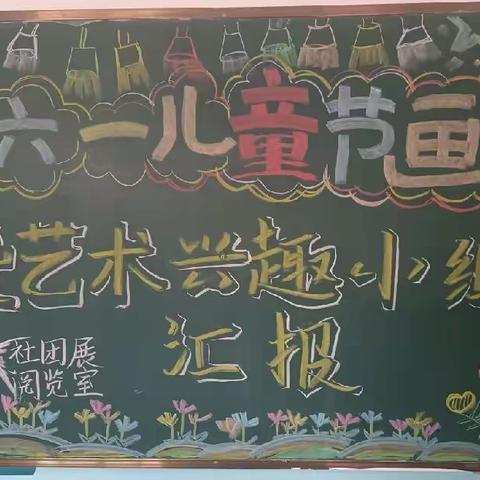 六一儿童节画
艺术兴趣小组
汇报
社团展
阅览室